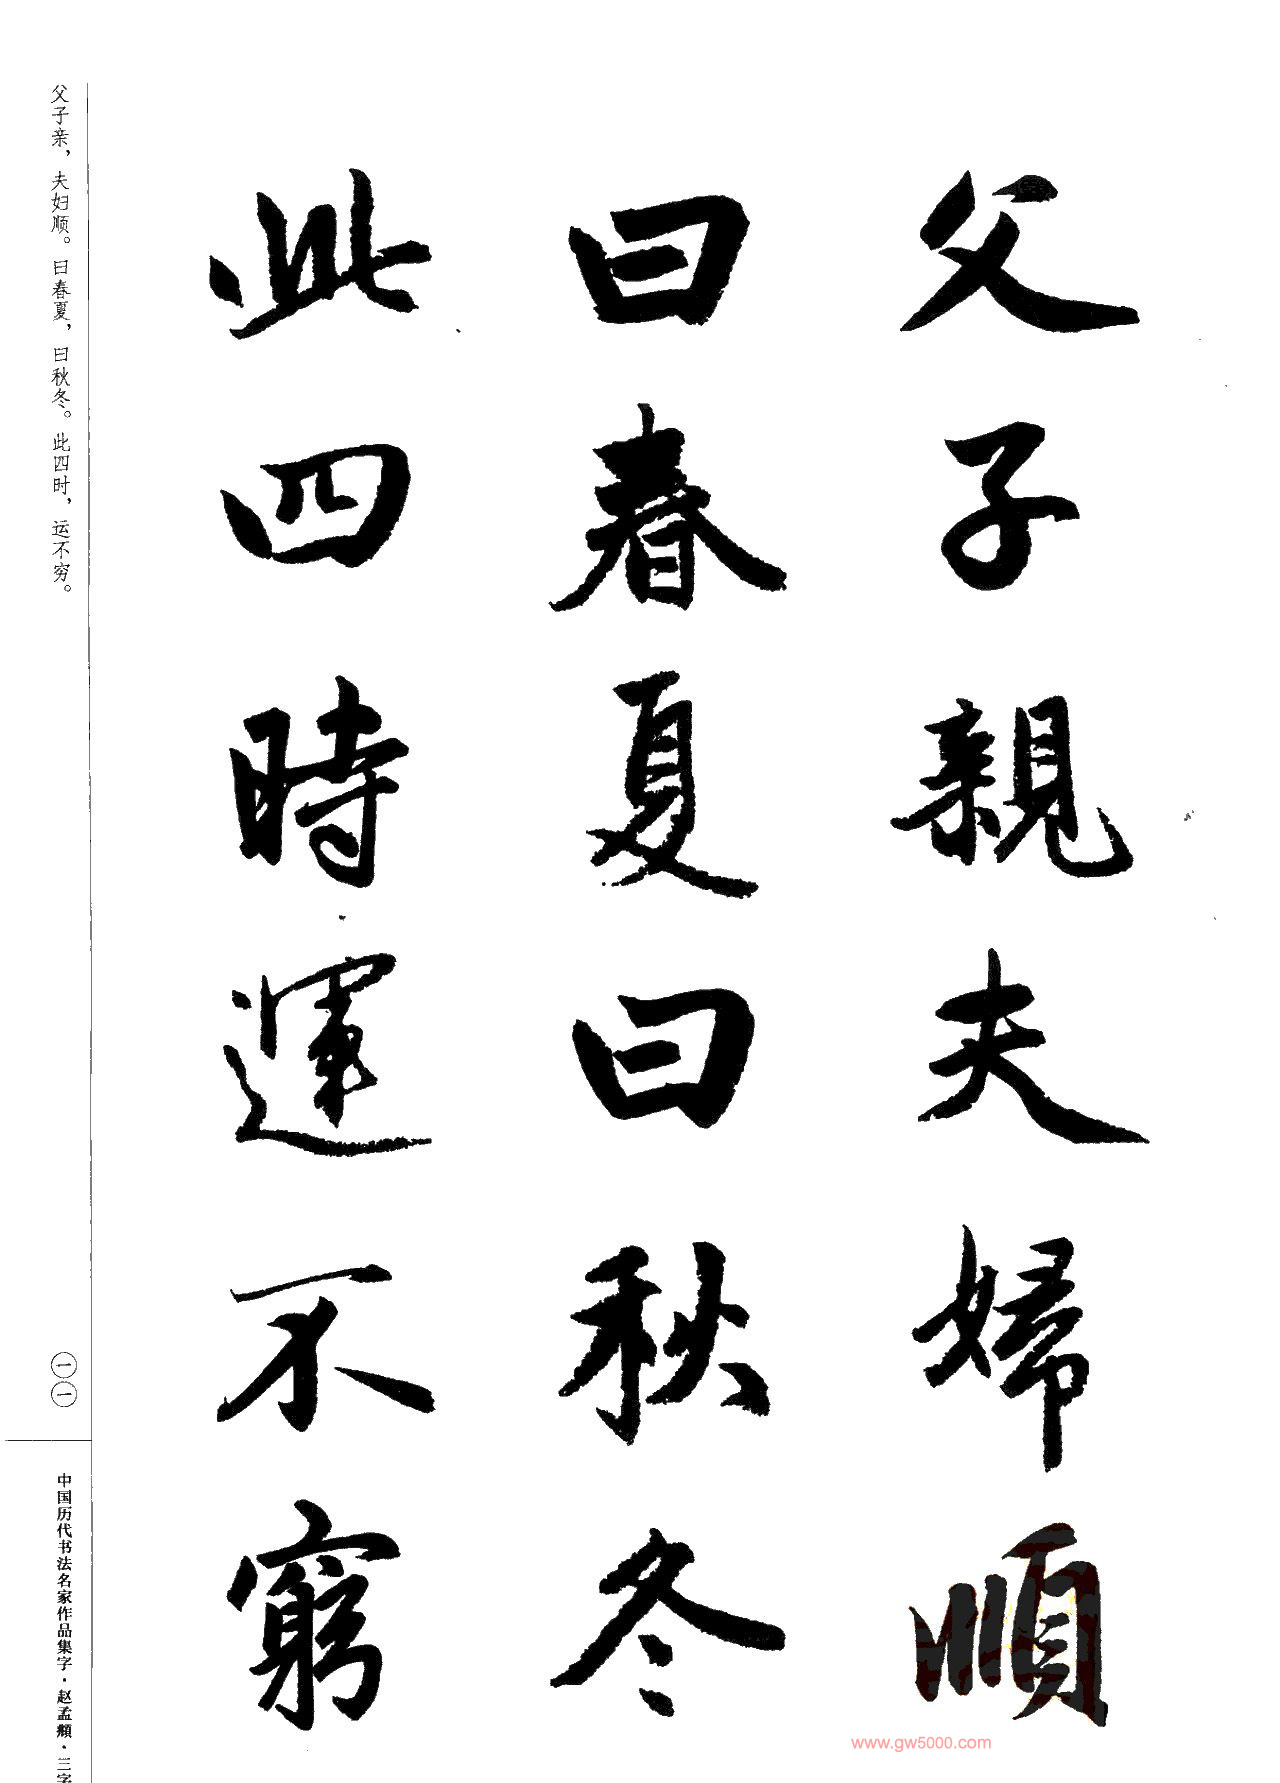 父子親夫婦順
曰春夏曰秋冬
此四時運不窮
父子亲，夫妇顺。曰春夏，曰秋冬。此四时，运不穷。
一一
中国历代书法名家作品集字·赵孟頫·三字
www.gw5000.com